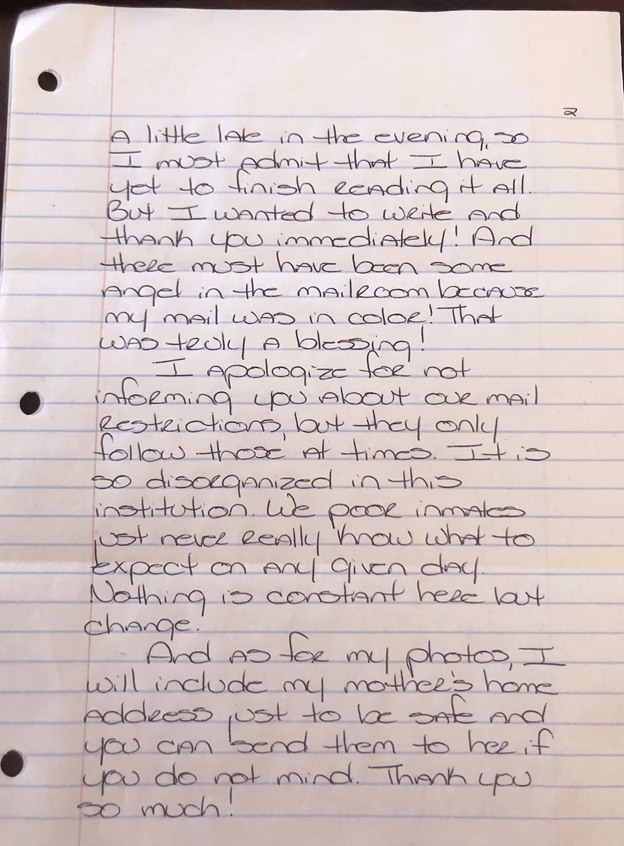 2
A little late in the evening, so
I must admit that I have
yet to finish reading it all.
But I wanted to write and
thank you immediately! And
there must have been some
angel in the mailroom because
my mail was in color! That
was truly a blessing!
I apologize for not
informing you about our mail
restrictions, but they only
follow those at times. It is
so disorganized in this
institution. We poor inmates
just never really know what to
expect on any given day.
Nothing is constant here but
change.
And as for my photos, I
will include my mother's home
address just to be safe and
you can send them to her, if
you do not mind. Thank you
so much!